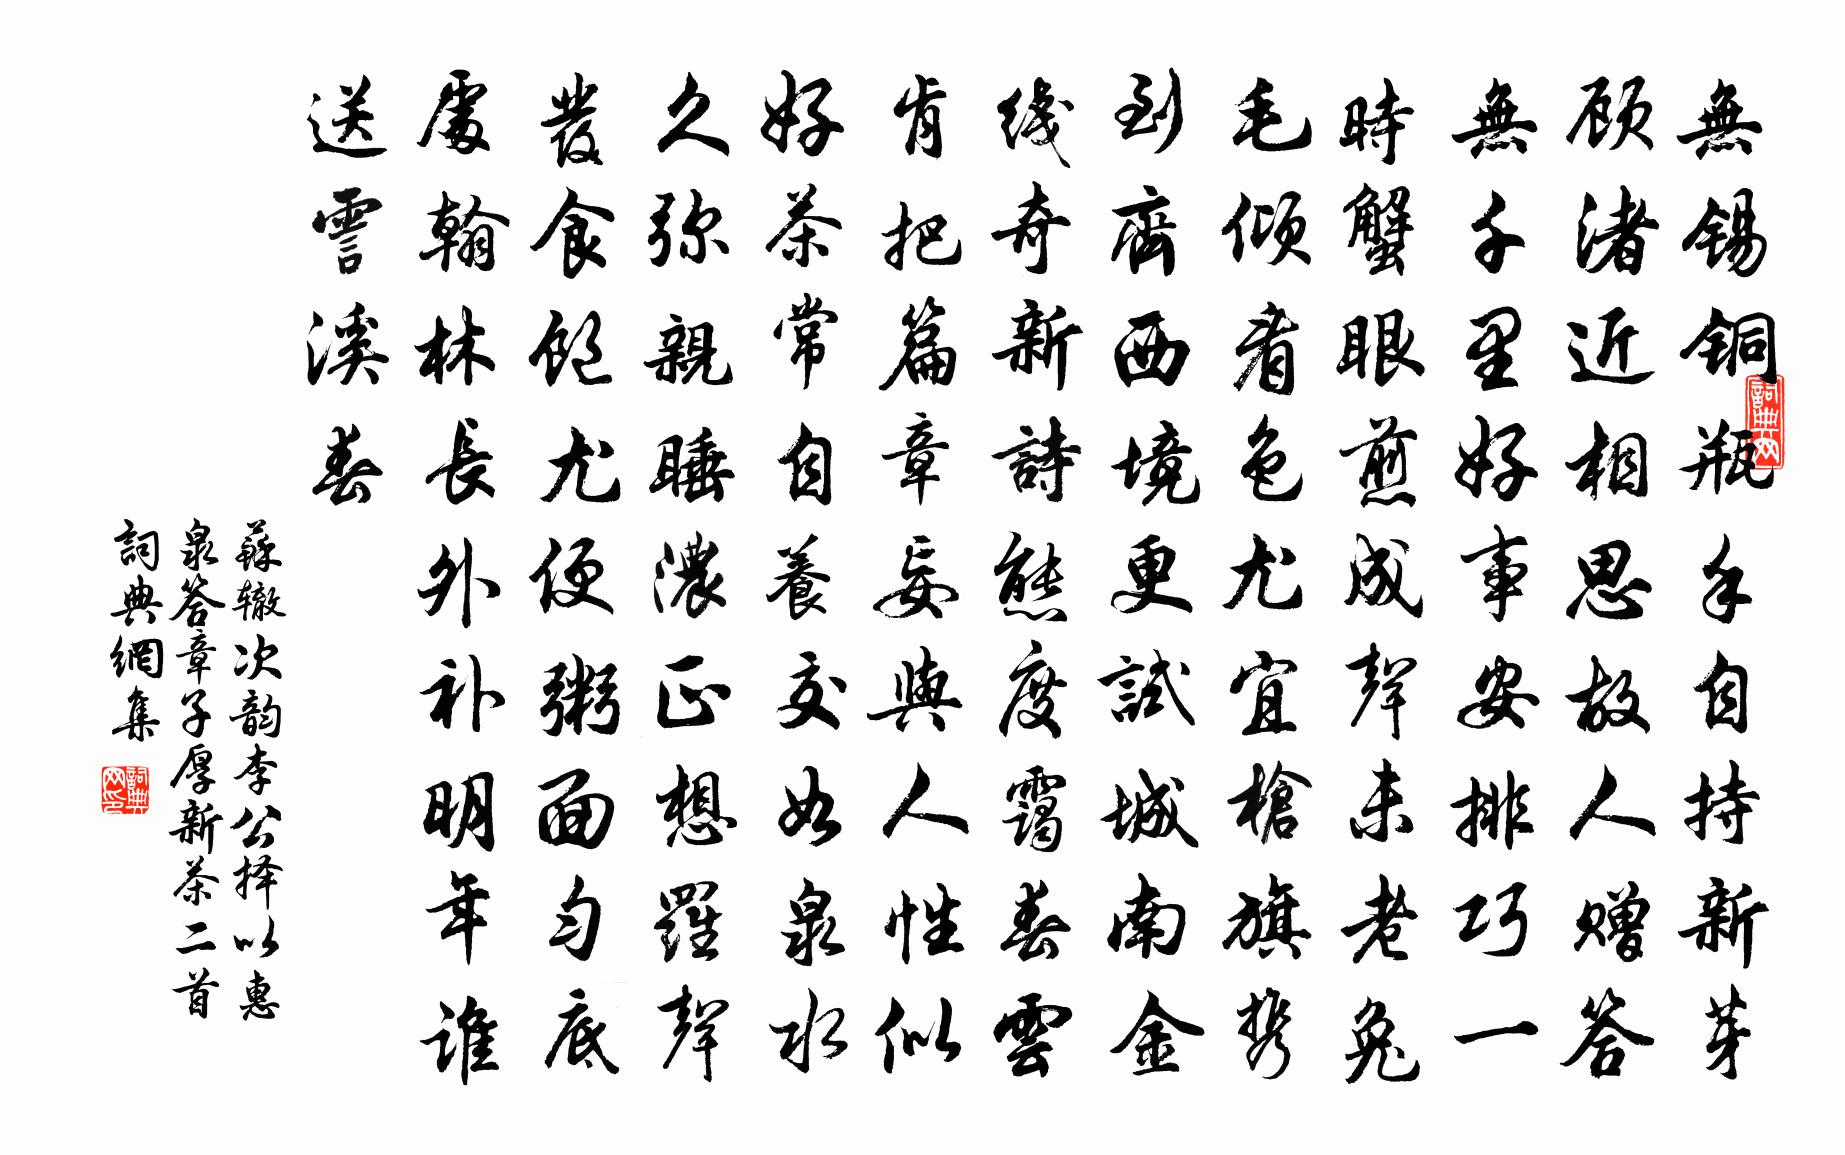 無錫銅瓶手自持新芽
顾渚近相思故人赠答
無千里好事安排巧一
時蟹眼煎成聲未老兔
毛倾看色尤宜槍旗携
到齊西境更試城南金
线奇新詩態度靄春雲
肯把篇章妄與人性似
好茶常自養交如泉水
久弥親睡濃正想羅聲
發食飽尤便粥面匀底
處翰林長外补明年谁
送霅溪春
蘇辙次韵李公择以惠
泉答章子厚新茶二首
詞典網集
詞典网
詞典网印